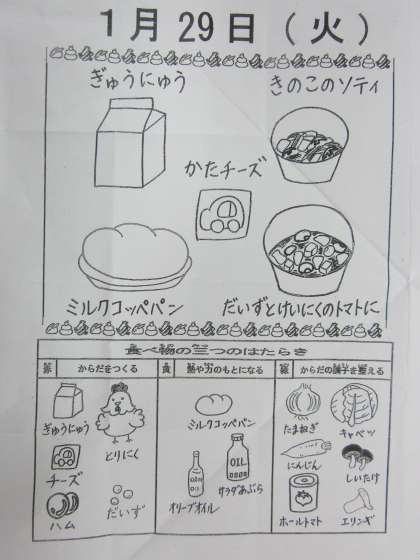 1月29日(火)
ぎゅうにゅう
きのこのソティ
かたチーズ
ミルクコッペパン
だいずとけいにくのトマトに
食べ物の三つのはたらき
赤 からだをつくる
黄 熱や力のもとになる
緑 からだの調子を整える
ぎゅうにゅう
とりにく
チーズ
ハム
だいず
ミルクコッペパン
オリーブオイル
OIL
OIL
サラダあぶら
たまねぎ
キャベツ
にんじん
しいたけ
ホールトマト
エリンギ